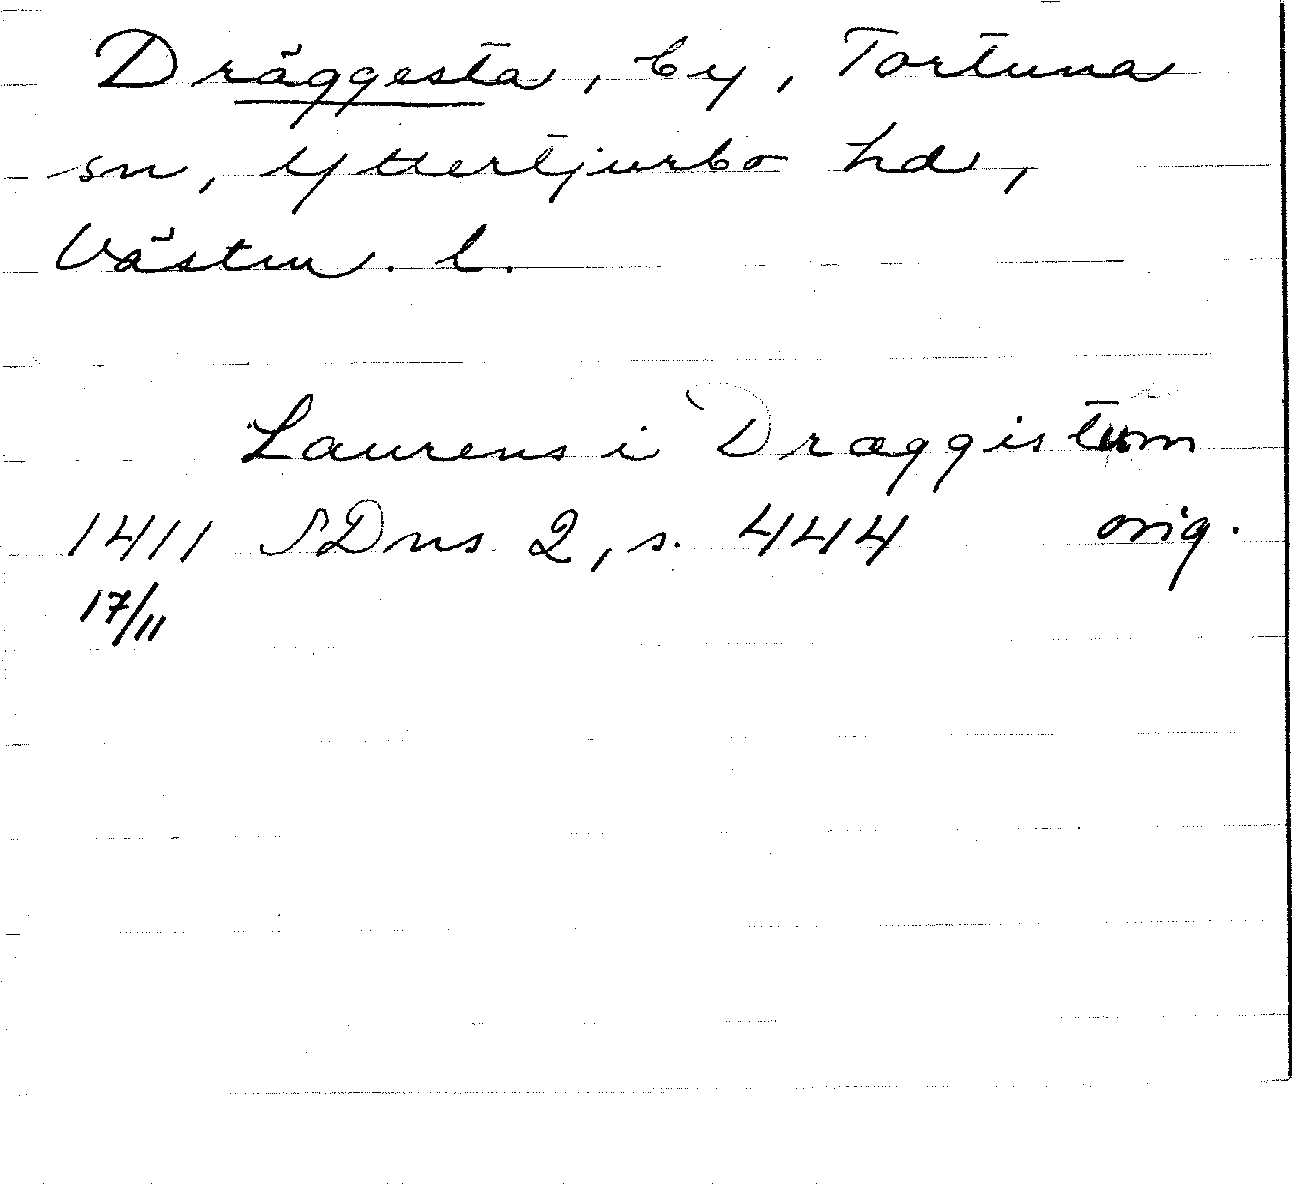 Dräggesta, by, Tortuna
sn, Yttertjurbo hd,
Västm. l.
Laurens i Dræggistum
1411 SDns 2, s. 444 orig.
17/11